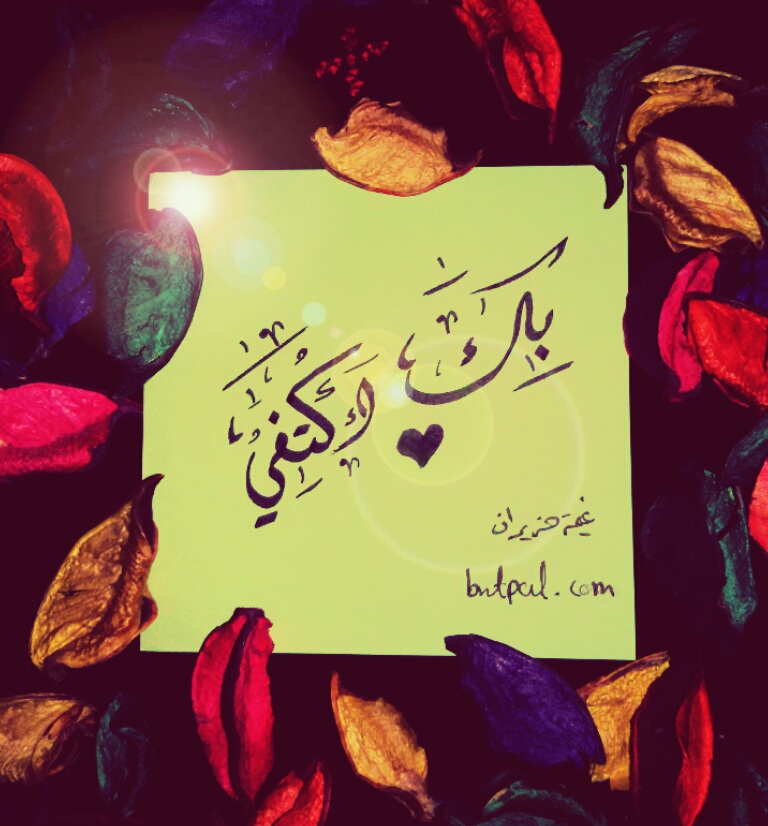 بِكَ أَكْتَفِي
غيمة حزيران
bntpal.com